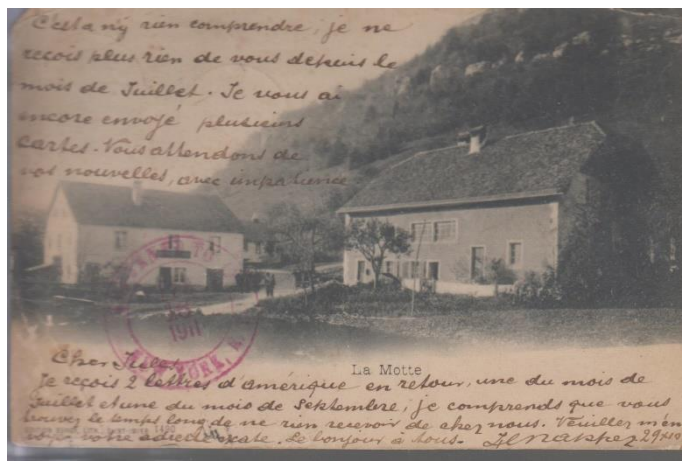 C'est a n'y rien comprendre, je ne
reçois plus rien de vous depuis le
mois de Juillet. Je vous ai
encore envoyé plusieurs
cartes. Nous attendons de
vos nouvelles, avec impatience
1911
NEW YORK, N.
La Motte
Cher
Je reçois 2 lettres d'amérique en retour, une du mois de
Juillet et une du mois de Septembre, je comprends que vous
trouvez le temps long de ne rien recevoir de chez nous. Veuillez m'en
votre adresse exate. Le bonjour à tous.